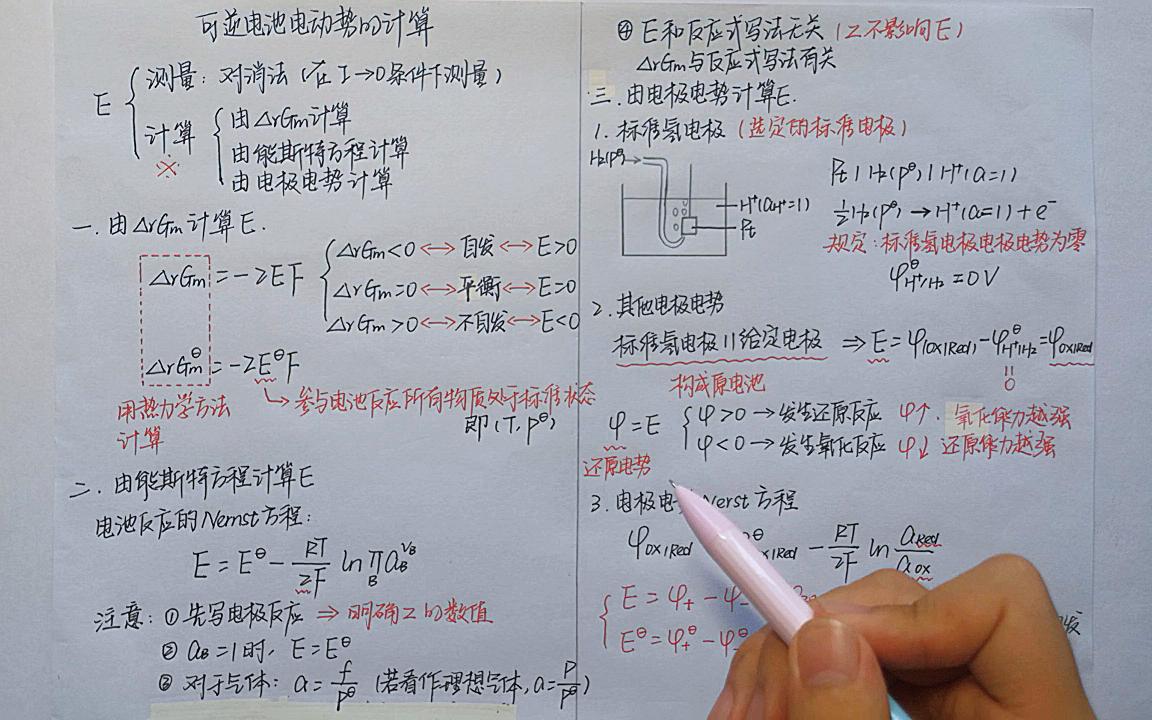 可逆电池电动势的计算
E { 测量: 对消法 (在 I→0条件下测量)
计算 { 由ΔrGm计算
※ 由能斯特方程计算
由电极电势计算
一. 由ΔrGm计算E.
ΔrGm = -zEF { ΔrGm<0 ↔ 自发 ↔ E>0
ΔrGm=0 ↔ 平衡 ↔ E=0
ΔrGm>0 ↔ 不自发 ↔ E<0
ΔrGm^θ = -zE^θF
↳ 参与电池反应所有物质处于标准状态
即(T, p^θ)
用热力学方法
计算
二. 由能斯特方程计算E
电池反应的Nernst方程:
E = E^θ - RT/zF ln Π_B a_B^νB
注意: ① 先写电极反应 ⇒ 明确z的数值
② aB=1时, E=E^θ
③ 对于气体: a = f/p^θ (若看作理想气体, a=p/p^θ)
④ E和反应式写法无关 (z不影响E)
ΔrGm与反应式写法有关
三. 由电极电势计算E.
1. 标准氢电极 (选定的标准电极)
H2(p^θ)→
H+(aH+=1)
Pt
Pt | H2(p^θ) | H+(a=1)
½H2(p^θ) → H+(a=1) + e-
规定: 标准氢电极电极电势为零
φ^θ H+/H2 = 0V
2. 其他电极电势
标准氢电极 || 给定电极 ⇒ E = φ(Ox|Red) - φ^θ H+|H2 = φOx|Red
构成原电池
0
φ=E { φ>0 → 发生还原反应 φ↑. 氧化能力越强
φ<0 → 发生氧化反应 φ↓ 还原能力越强
还原电势
3. 电极电 Nerst方程
φOx|Red θ Ox|Red - RT/zF ln aRed/aOx
{ E = φ+ - φ-
E^θ = φ+^θ - φ-^θ